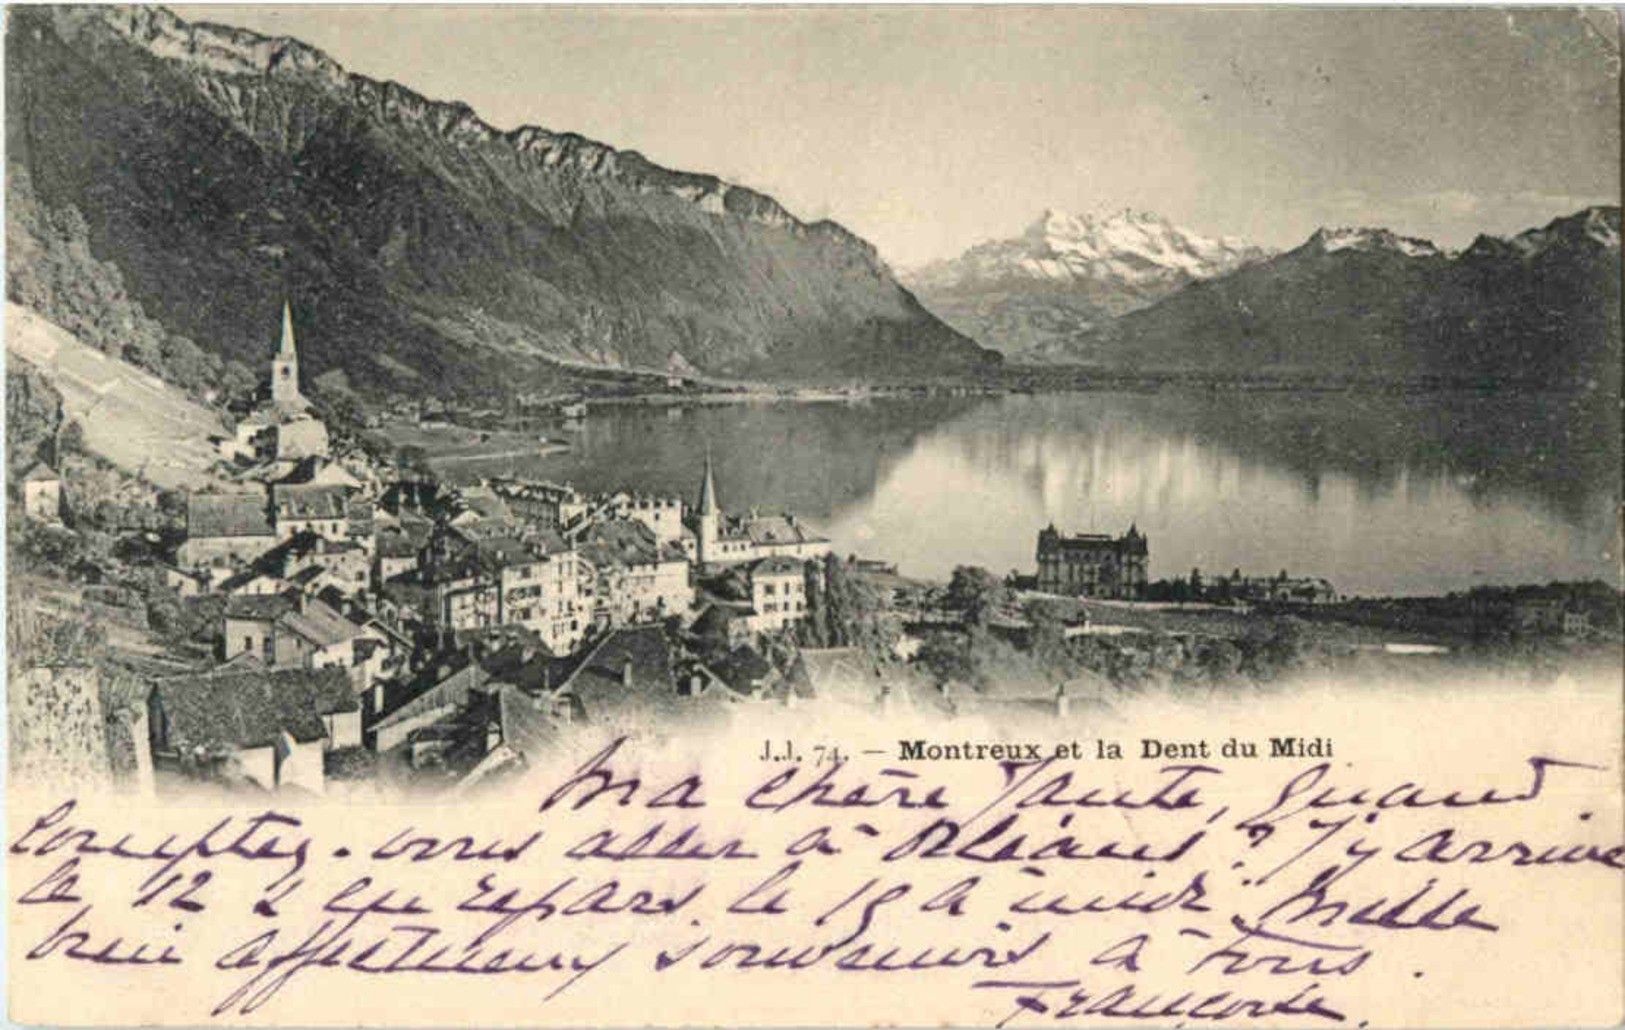 J.J. 74. – Montreux et la Dent du Midi
Ma chère Tante, Quand
comptez-vous aller à Orléans? J'y arrive
le 12 & en repars le 19 à midi. Mille
bien affectueux souvenirs à tous.
Françoise